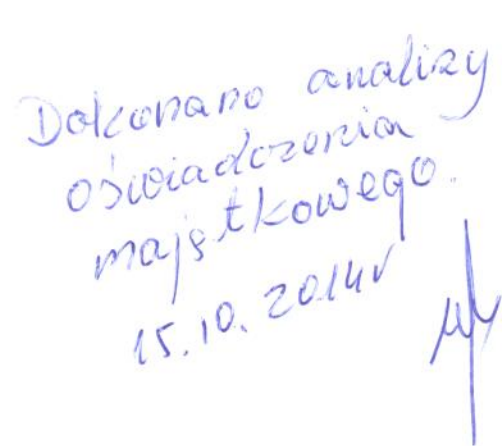 Dokonano analizy
oświadczenia
majątkowego.
15.10.2014r